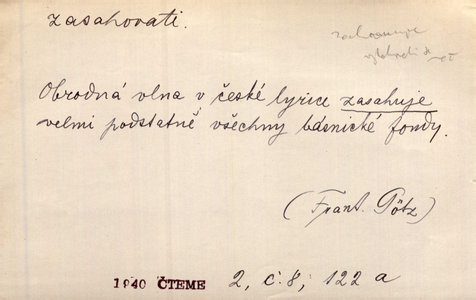 zasahovati.
Obrodná vlna v české lyrice zasahuje
velmi podstatně všechny básnické fondy.
(Frant. Götz)
1940 ČTEME 2, č. 8, 122 a